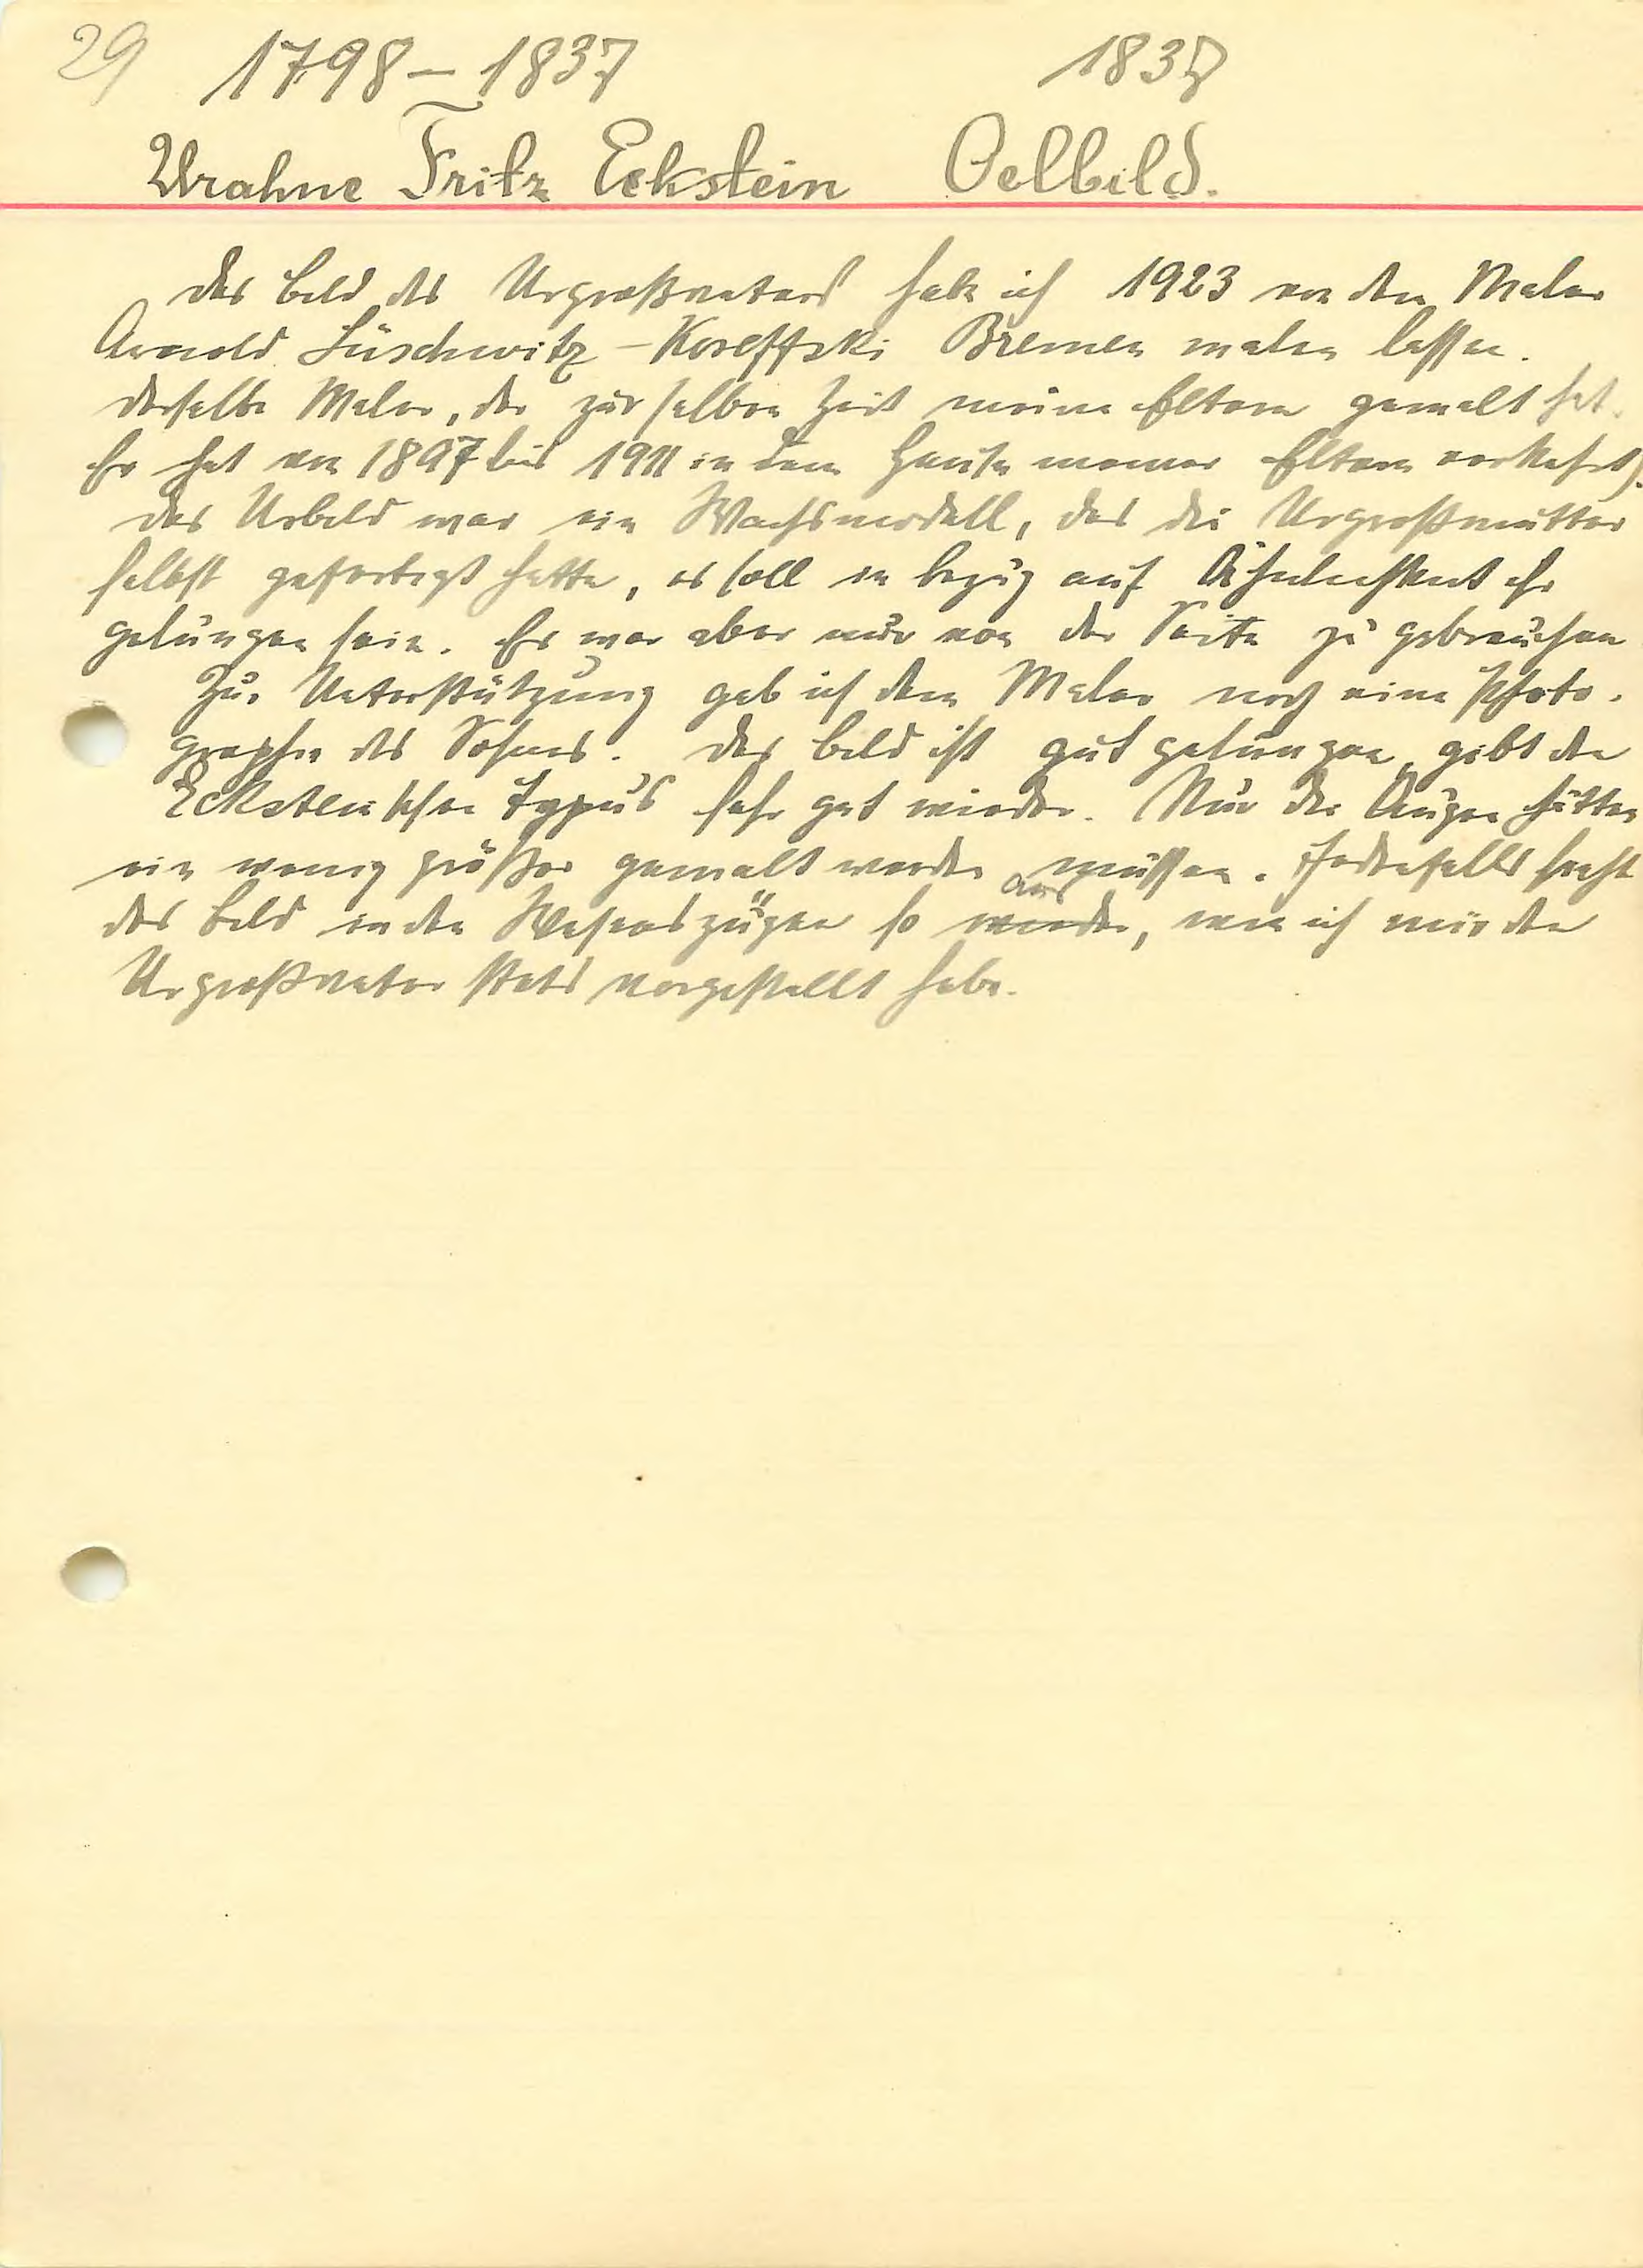 29 1798–1837 1837
Urahne Fritz Eckstein Oelbild.
Das Bild des Urgroßvaters habe ich 1923 von dem Maler
Arnold Lüschwitz-Koreffski Bremen malen lassen.
derselbe Maler, der zur selben Zeit meine Eltern gemalt hat.
Er hat von 1897 bis 1911 in dem Hause meiner Eltern verkehrt).
Das Urbild war ein Wachsmodell, das die Urgroßmutter
selbst gefertigt hatte, es soll in bezug auf Ähnlichkeit
gelungen sein. Er war aber nur von der Seite zu gebrauchen
Zur Unterstützung gab ich dem Maler noch eine Photo-
graphie des Sohnes. Das Bild ist gut gelungen, gibt den
Ecksteinschen Typus sehr gut wieder. Nur die Augen hätten
ein wenig größer gemalt werden müssen. Jedenfalls sieht
das Bild in den Wesenszügen so aus, wie ich mir den
Urgroßvater stets vorgestellt habe.